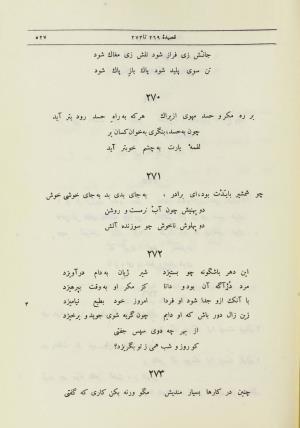 قصیدهٔ ۲۶۹ تا ۲۷۳ ۵۲۷
جانش زی فراز شود نفس زی مغاک شود
تن سوی پلید شود پاک باز پاک شود
۲۷۰
بر ره مکر و حسد مپوی ازیراک هرکه به راه حسد رود بتر آید
چون به حسد، بنگری به خوان کسان بر
لقمهٔ یارت به چشم خوبتر آید
۲۷۱
چو شمشیر بایدت بود، ای برادر، به جای بدی بد به جای خوشی خوش
دو پهنیش چون آب نرمست و روشن
دو پهلوش ناخوش چو سوزنده آتش
۲۷۲
این دهر باشگونه چو بستیزد شیر ژیان به دام درآویزد
مرد دژآگه آن بود و دانا کز مکر او به وقت بپرهیزد
با آنک ازو جدا شود او فردا امروز خود بطبع نیامیزد
۳
زین زال دور باش که او دایم چون گربه شوی جوید و برخیزد
از بهر چه دوی سپس جفتی
کو روز و شب همی ز تو بگریزد؟
۲۷۳
چنین در کارها بسیار مندیش مگو ورنه بکن کاری که گفتی